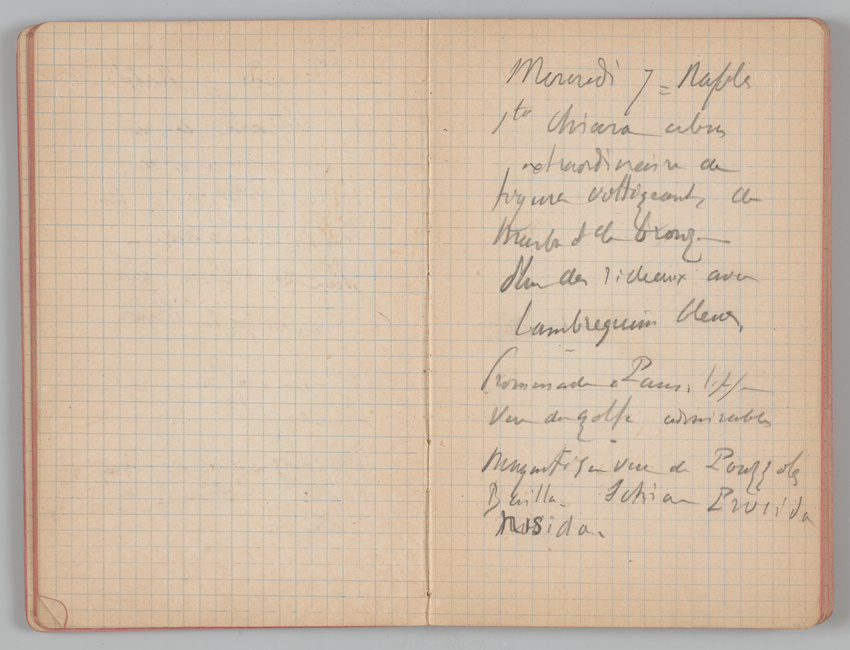 Mercredi 7 = Naples
Sta Chiara
extraordinaire de
figures voltigeant, de
marbre et de bronze
des rideaux avec
Lambrequins bleus,
Promenade a
Vue du golfe admirables
Magnifique vue de Pouzzoles
Ischia Procida
Nisida.